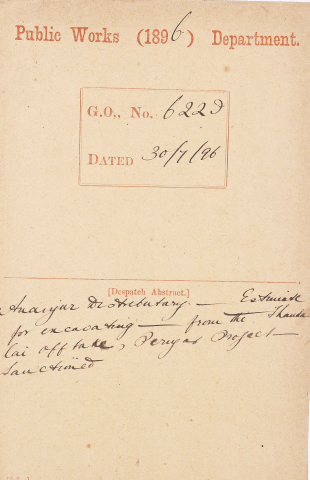 Public Works (1896) Department.
G.O., No. 622 D
Dated 30/7/96
[Despatch Abstract.]
Distributary — Estimate
for excavating — from the
off take, Periyar Project —
Sanctioned